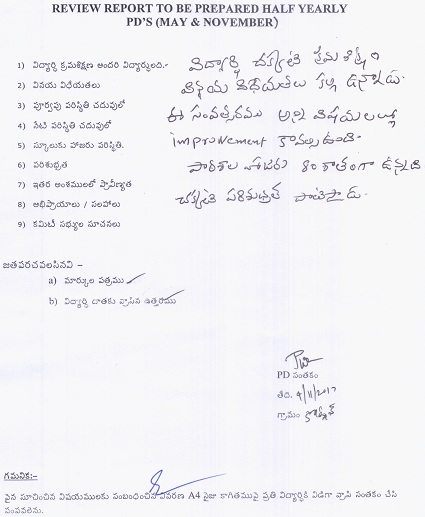 REVIEW REPORT TO BE PREPARED HALF YEARLY
PD'S (MAY & NOVEMBER)
1) విద్యార్థి క్రమశిక్షణ అందరి విద్యార్థులది.-
విద్యార్థి చక్కటి క్రమశిక్షణ
2) వినయ విధేయతలు
వినయ విధేయతలు కల్గి ఉన్నాడు.
3) పూర్వపు పరిస్థితి చదువులో
4) నేటి పరిస్థితి చదువులో
ఈ సంవత్సరము అన్ని విషయాలలో
5) స్కూలుకు హాజరు పరిస్థితి.
improvement కావల్సి ఉంది.
6) పరిశుభ్రత
పాఠశాల హాజరు 80 శాతంగా ఉన్నది
7) ఇతర అంశములలో ప్రావీణ్యత
8) అభిప్రాయాలు / సలహాలు
చక్కటి పరిశుభ్రత పాటిస్తాడు.
9) కమిటీ సభ్యుల సూచనలు
జతపరచవలసినవి -
a) మార్కుల పత్రము
b) విద్యార్థి దాతకు వ్రాసిన ఉత్తరము
PD సంతకం
తేది. 9/11/2017
గ్రామం
గమనిక:-
పైన సూచించిన విషయములకు సంబంధించిన వివరణ A4 సైజు కాగితముపై ప్రతి విద్యార్థికి విడిగా వ్రాసి సంతకం చేసి
పంపవలెను.